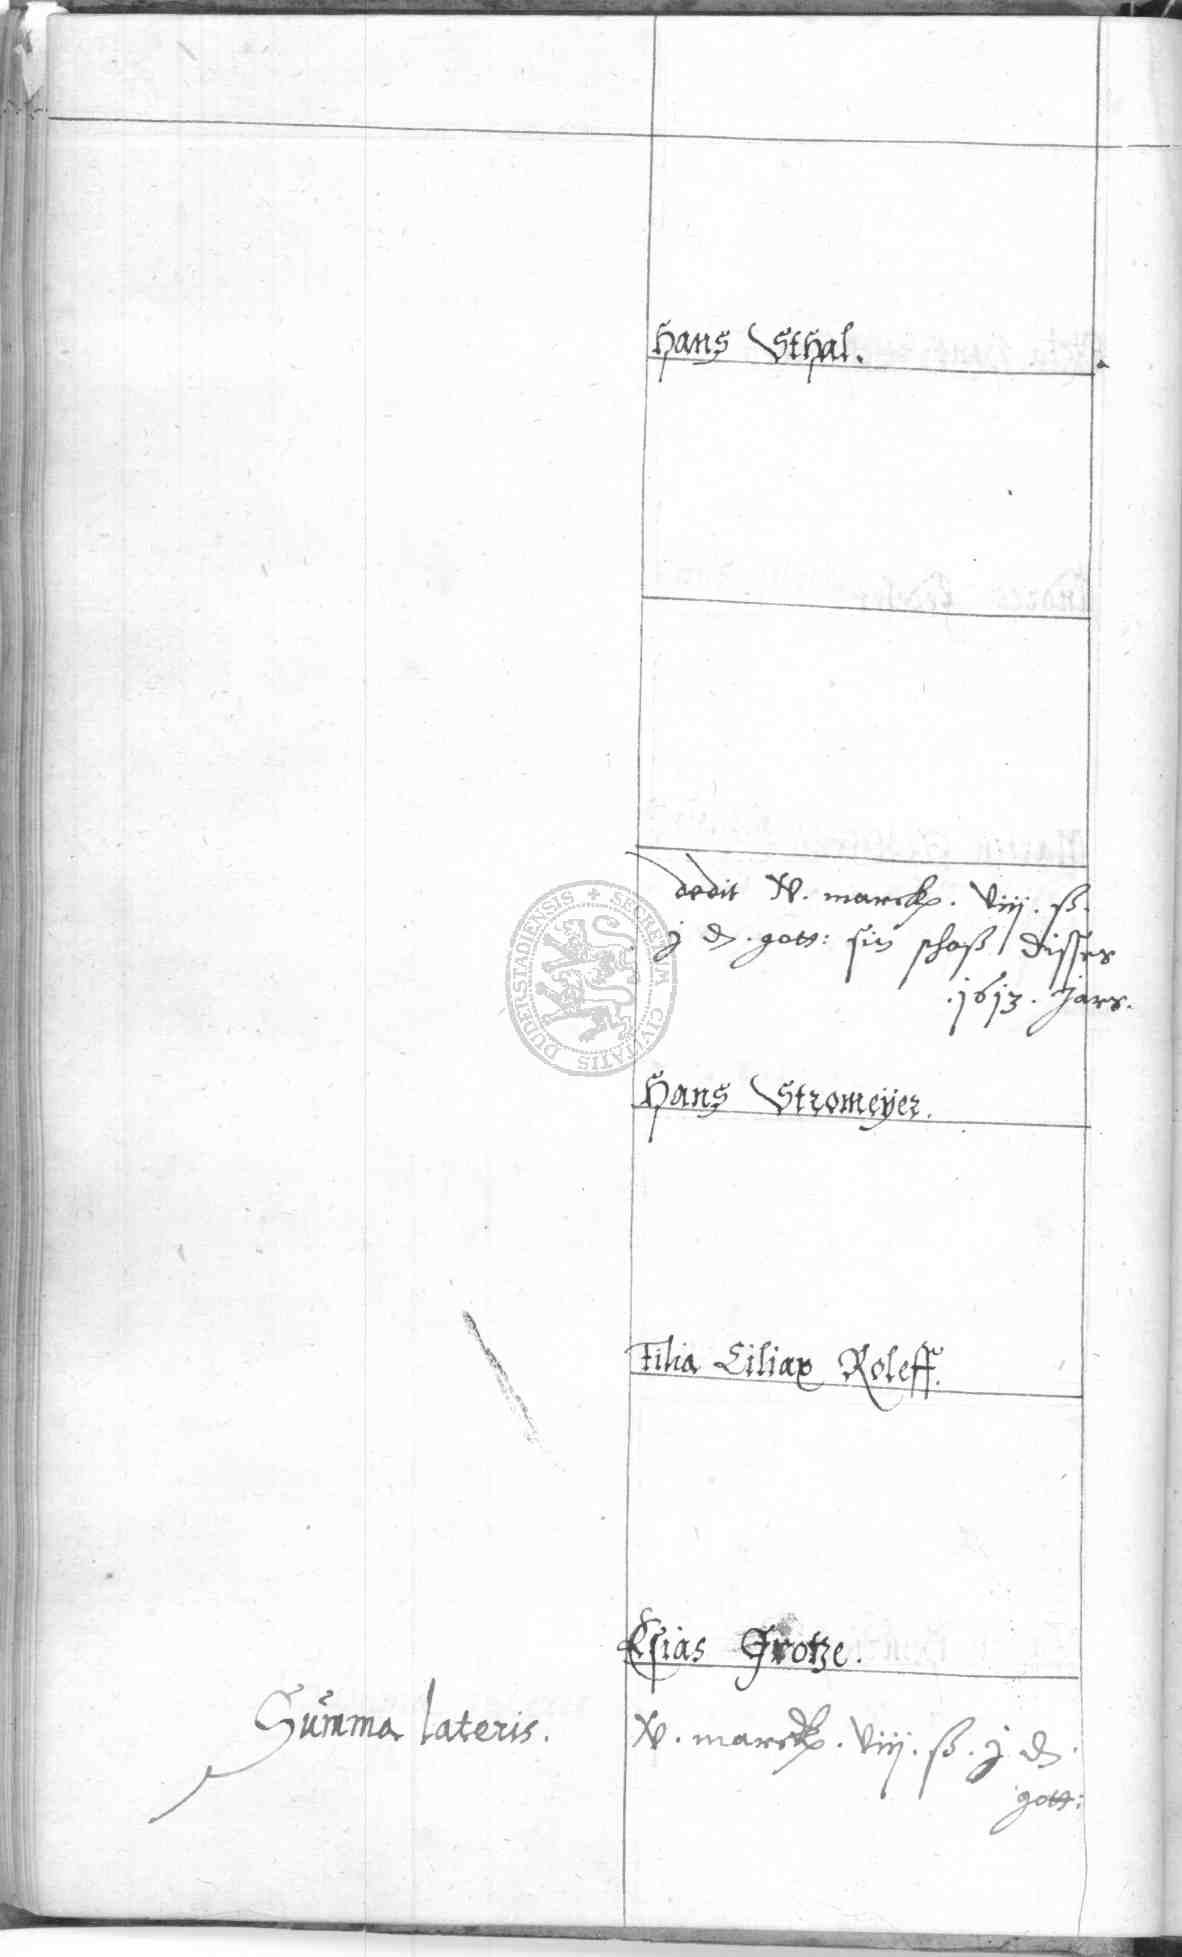 Hans Sthal.
dedit XV. marck. viij. ß.
j d. gott: sin schoß disses
.1613. Jars.
SECRETUM CIVITATIS DUDERSTADIENSIS
Hans Stromeÿer.
Filia Ciliax Roleff.
Esias Grotze.
Sum̃ma lateris. XV. marck. viij. ß. j d.
gott: